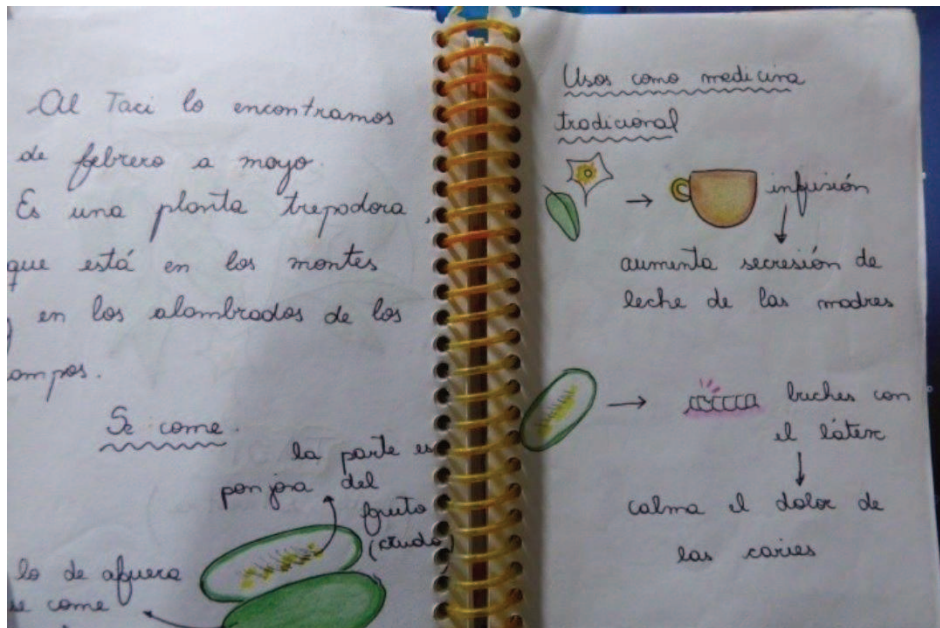 Al Taci lo encontramos
de febrero a mayo.
Es una planta trepadora,
que está en los montes
en los alambrados de los
ampos.
Se come.
la parte es
ponjosa del
fruto
(crudo)
lo de afuera
se come
Usos como medicina
tradicional
infusión
aumenta secresión de
leche de las madres
buches con
el látex
calma el dolor de
las caries